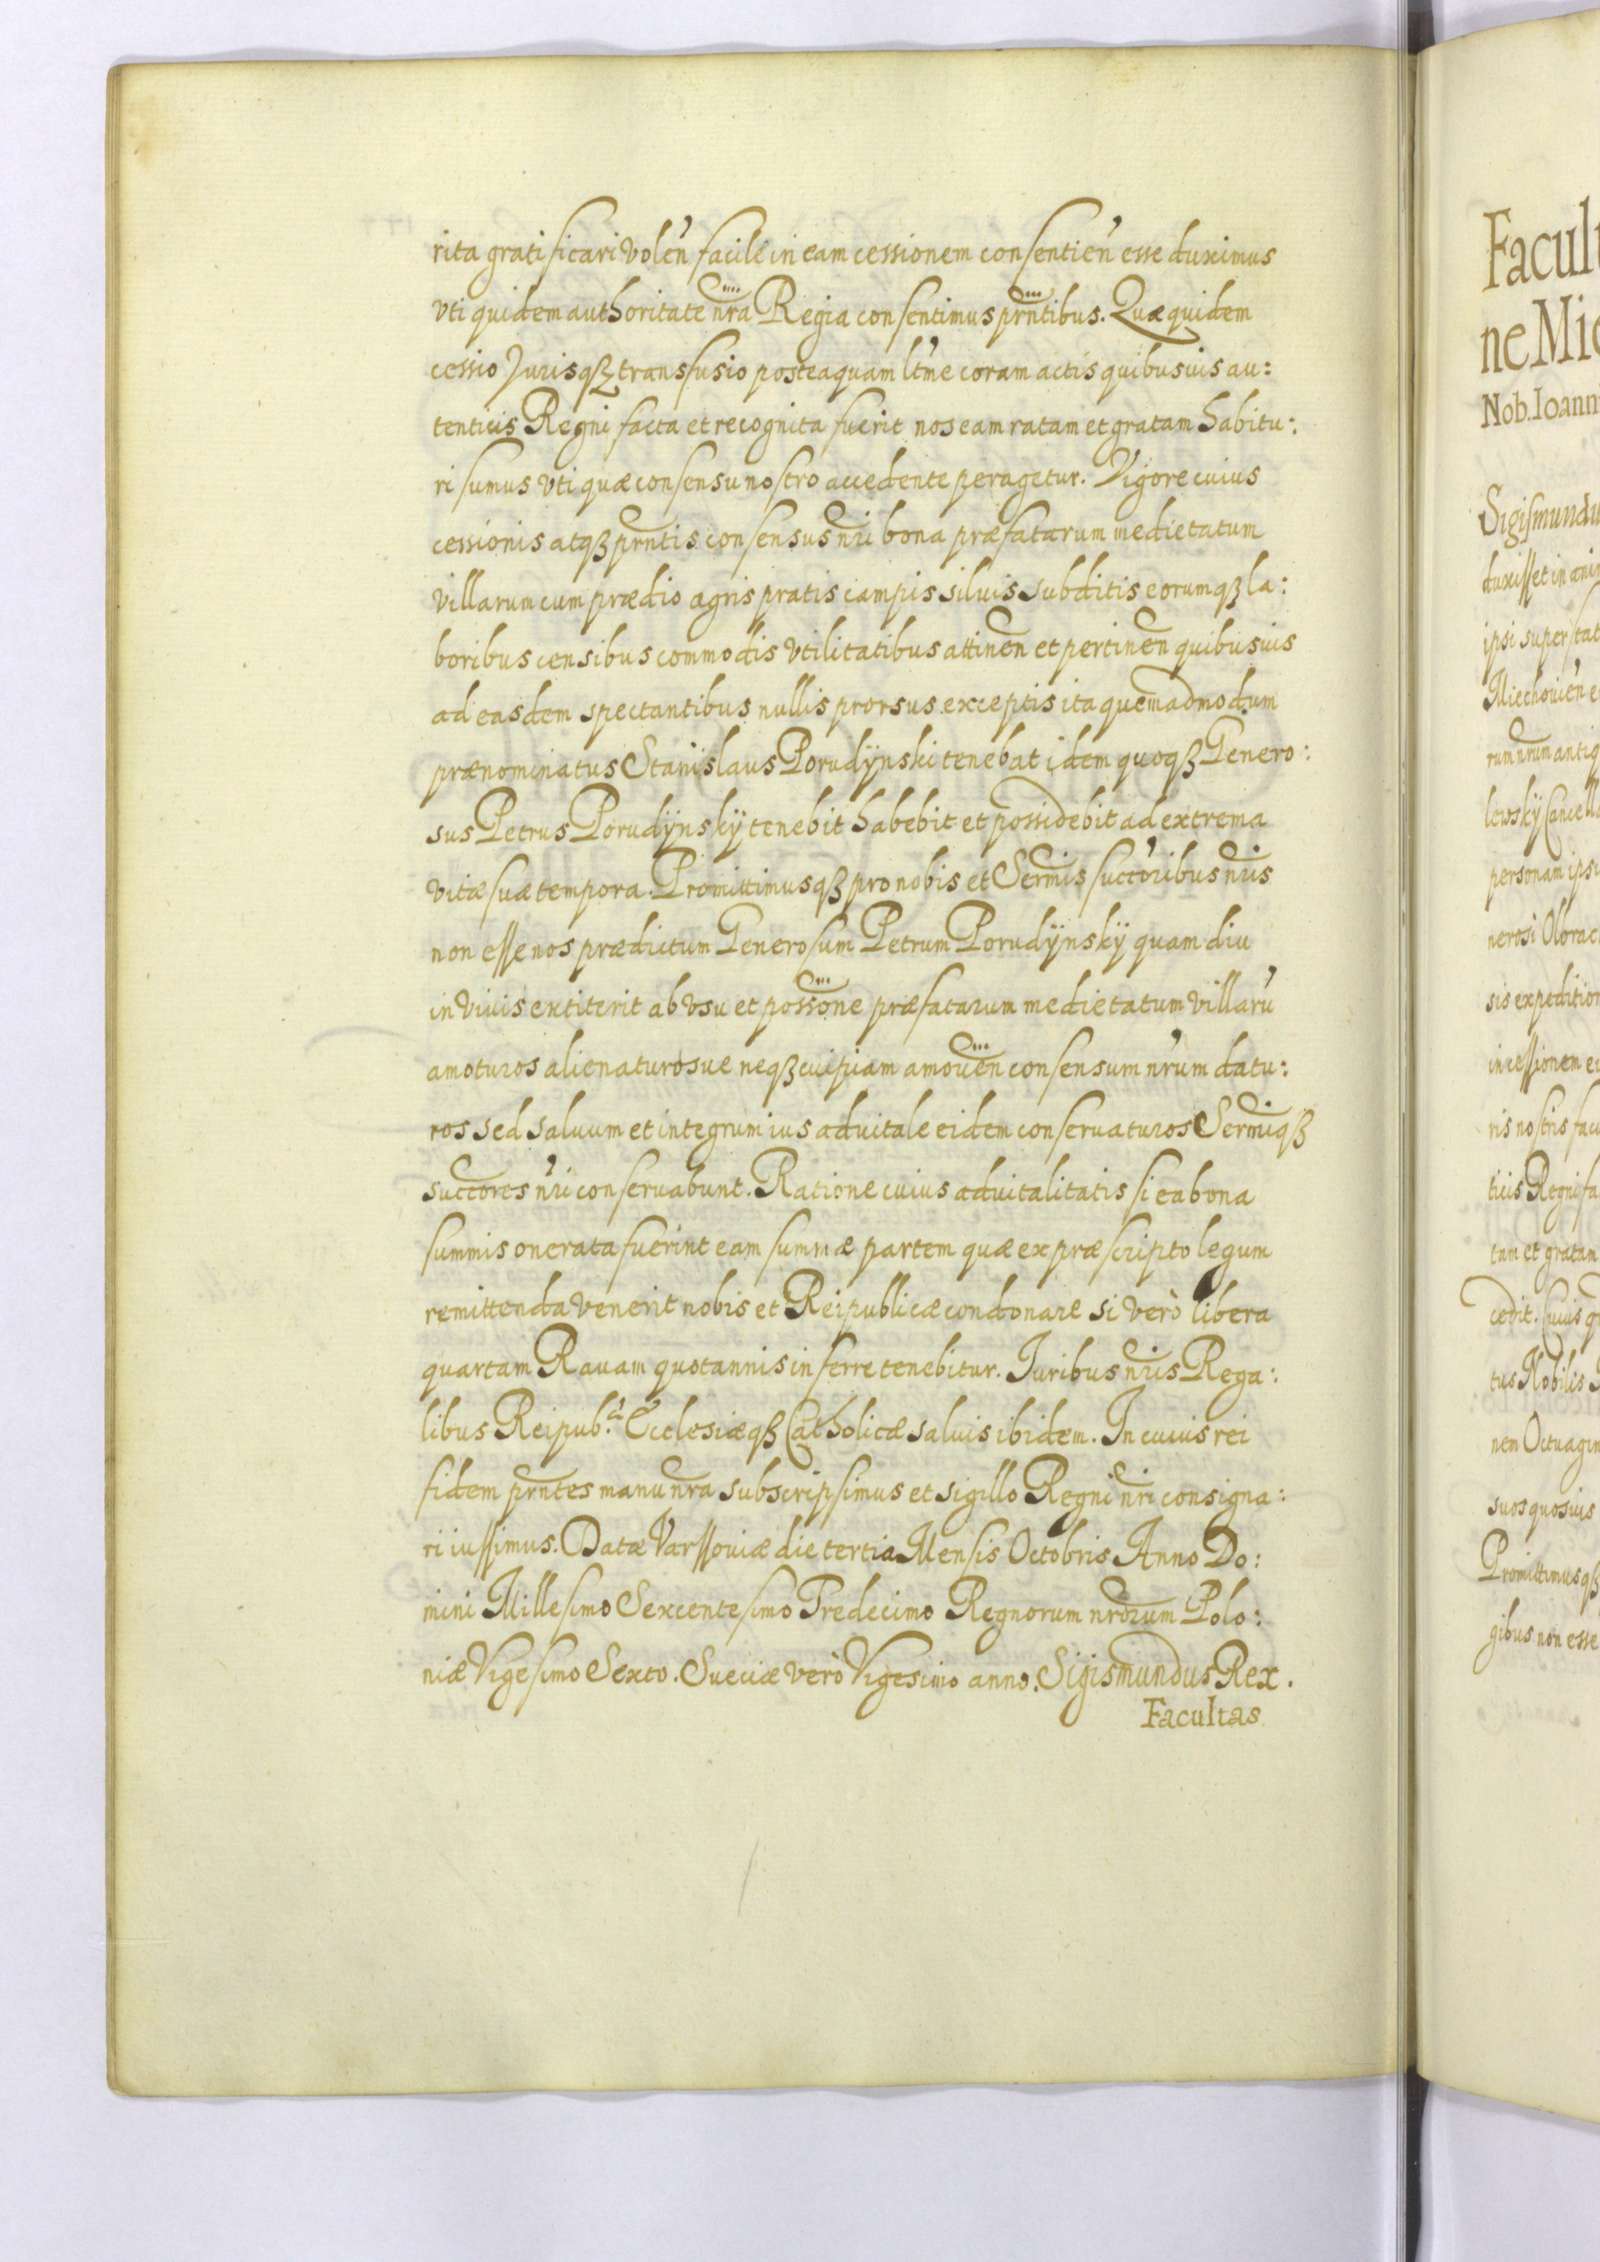 rita gratificari volen̄ facile in eam cessionem consentien̄ esse duximus
vti quidem authoritate nr̄a Regia consentimus prn̄tibus. Quæ quidem
cessio Jurisqꝫ transfusio posteaquam ltm̄e coram actis quibusuis au:
tenticis Regni facta et recognita fuerit nos eam ratam et gratam habitu:
ri sumus vti quæ consensu nostro accedente peragetur. Vigore cuius
cessionis atqꝫ prn̄tis consensus nr̄i bona præfatarum medietatum
villarum cum prædio agris pratis campis siluis subditis eorumqꝫ la:
boribus censibus commodis vtilitatibus attinen̄ et pertinen̄ quibusuis
ad easdem spectantibus nullis prorsus exceptis ita quemadmodum
prænominatus Stanislaus Porudÿnski tenebat idem quoqꝫ Genero:
sus Petrus Porudÿnskÿ tenebit habebit et possidebit ad extrema
vitæ suæ tempora. Promittimusqꝫ pro nobis et Serm̄is succōribus nr̄is
non esse nos prædictum Generosum Petrum Porudÿnskÿ quam diu
in viuis extiterit ab vsu et possōne præfatarum medietatum villarū
amoturos alienaturosue neqꝫ cuipiam amouen̄ consensum nr̄um datu:
ros sed saluum et integrum ius aduitale eidem conseruaturos Serm̄iqꝫ
succōres nr̄i conseruabunt. Ratione cuius aduitalitatis si ea bona
summis onerata fuerint eam summæ partem quæ ex præscripto legum
remittenda venerit nobis et Reipublicæ condonare si verò libera
quartam Rauam quotannis inferre tenebitur. Iuribus nr̄is Rega:
libus Reipub. Ecclesiæqꝫ Catholicæ saluis ibidem. In cuius rei
fidem prn̄tes manu nr̄a subscripsimus et sigillo Regni nr̄i consigna:
ri iussimus. Datæ Varssouiæ die tertia Mensis Octobris Anno Do:
mini Millesimo Sexcentesimo Tredecimo Regnorum nr̄orum Polo:
niæ Vigesimo Sexto. Sueciæ verò Vigesimo anno. Sigismundus Rex.
Facultas
ne
Nob. Ioann
duxisset in
ipsi
Miechouien̄
rum nr̄um antiq
lewskÿ Cancell
personam ipsi
nerosi
sis expedition
in cessionem
ris nostris
ticis Regni fa
tam et gratam
cedit. Cuius
tus Nobilis
nem Octuagin
suos quosuis
Promittimusqꝫ
gibus non esse